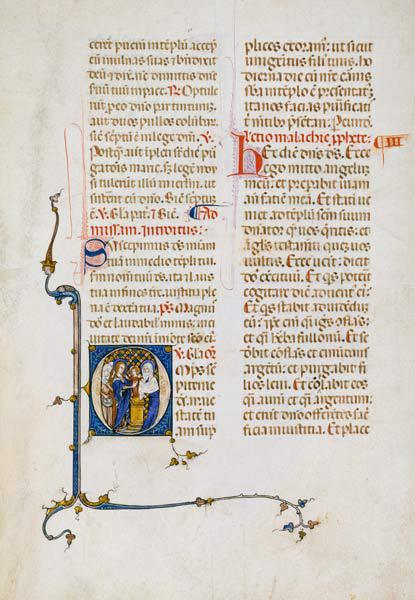 ceret puerum in templum accepit
eum in ulnas suas et benedixit
deum et dixit. nunc dimittis domine
seruum tuum in pace. R. Optule
runt pro eo domino par turturum.
aut duos pullos columbarum.
sicut scriptum est in lege domini. V.
Postquam autem impleti sunt dies pur
gationis marie.
V. Gloria patri
Ad
missam. Introitus.
Suscepimus deus misericordiam
tuam in medio templi tui
secundum nomen tuum deus ita et laus
tua in fines terre. iustitia ple
na est dextera tua. ps. Magnus
dominus et laudabilis nimis. in ci
uitate dei nostri in monte sancto eius
V. Gloria. Or.
Omnips sem
piterne
deus maie
statem tu
am sup
plices exoramus. ut sicut
unigenitus filius tuus. ho
dierna die cum nostre carnis
substantia in templo est presentatus.
ita nos facias purificatis
tibi mentibus presentari. Per eundem
Lectio malachie prophete. III
Hec dicit dominus deus. Ecce
ego mitto angelum
meum. et preparabit uiam
ante faciem meam. Et statim ue
niet ad templum sanctum suum
dominator quem uos queritis. et
angelus testamenti quem uos
uultis. Ecce uenit. dicit
dominus exercituum. Et quis poterit
cogitare diem aduentus eius.
Et quis stabit ad uidendum
eum. ipse enim quasi ignis conflans.
et quasi herba fullonum. Et se
debit conflans et emundans
argentum. et purgabit fi
lios leui. Et colabit eos
quasi aurum et quasi argentum.
et erunt domino offerentes sacri
ficia in iustitia. Et place